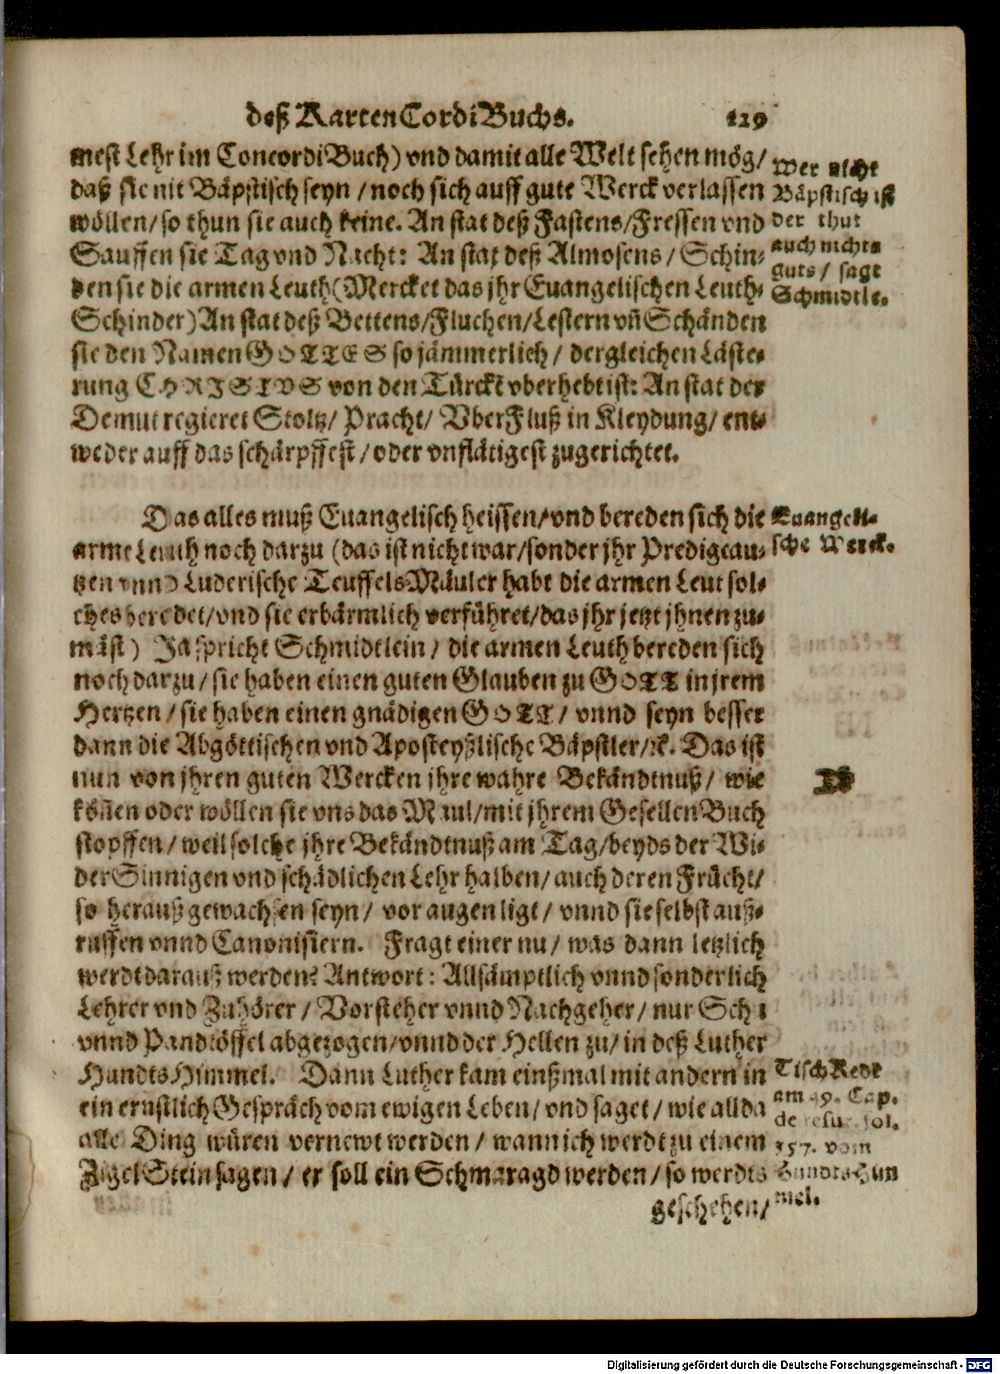 deß KartenCordiBuchs. 129
mest Lehr im ConcordiBuch) vnd damit alle Welt sehen mög/
daß sie nit Bäpstisch seyn / noch sich auff gute Werck verlassen
wöllen/ so thun sie auch keine. An stat deß Fastens/Fressen vnd
Sauffen sie Tag vnd Nacht: An stat deß Almosens/ Schin-
den sie die armen Leuth (Mercket das jhr Euangelischen Leuth-
Schinder) An stat deß Bettens/Fluchen/Lestern vñ Schänden
sie den Namen GOTTES so jämmerlich/ dergleichen Läste-
rung CHRISTVS von den Türckẽ vberhebt ist: An stat der
Demut regieret Stoltz/ Pracht/ VberFluß in Kleydung/ ent-
weder auff das schärpffest / oder vnflätigest zugerichtet.
Wer nicht
Bäpstisch ist
der thut
auch nichts
guts/ sagt
Schmidtle.
Das alles muß Euangelisch heissen/vnd bereden sich die
arme Leuth noch darzu (das ist nicht war/sonder jhr Predigcau-
tzen vnnd Luderische TeuffelsMäuler habt die armen Leut sol-
ches beredet/vnd sie erbärmlich verführet/das jhr jetzt jhnen zu-
mäst) Ja spricht Schmidtlein/ die armen Leuth bereden sich
noch darzu/ sie haben einen guten Glauben zu GOTT in jrem
Hertzen / sie haben einen gnädigen GOTT / vnnd seyn besser
dann die Abgöttischen vnd Aposteyßlische Bäpstler/ꝛc. Das ist
nun von jhren guten Wercken jhre wahre Bekändtnuß/ wie
köñen oder wöllen sie vns das Maul/mit jhrem GesellenBuch
stopffen / weil solche jhre Bekändtnuß am Tag/beyds der Wi-
derSinnigen vnd schädlichen Lehr halben/ auch deren Frücht/
so herauß gewachsen seyn/ vor augen ligt/ vnnd sie selbst auß-
ruffen vnnd Canonisiern. Fragt einer nu/ was dann letzlich
werdt darauß werden? Antwort: Allsämptlich vnnd sonderlich
Lehrer vnd Zuhörer/ Vorsteher vnnd Nachgeher/ nur Sch
vnnd Pandtöffel abgezogen/vnnd der Hellen zu/ in deß Luther
HundtsHimmel. Dann Luther kam einßmal mit andern in
ein ernstlich Gespräch vom ewigen Leben/ vnd saget/ wie allda
alle Ding würen vernewt werden/ wann ich werdt zu einem
ZigelStein sagen/ er soll ein Schmaragd werden/ so werdts
geschehen/
Euangeli-
sche Werck.
TischRedt
am 49. Cap.
de resur. fol.
357. vom
HundtsHim
mel.
Digitalisierung gefördert durch die Deutsche Forschungsgemeinschaft - DFG